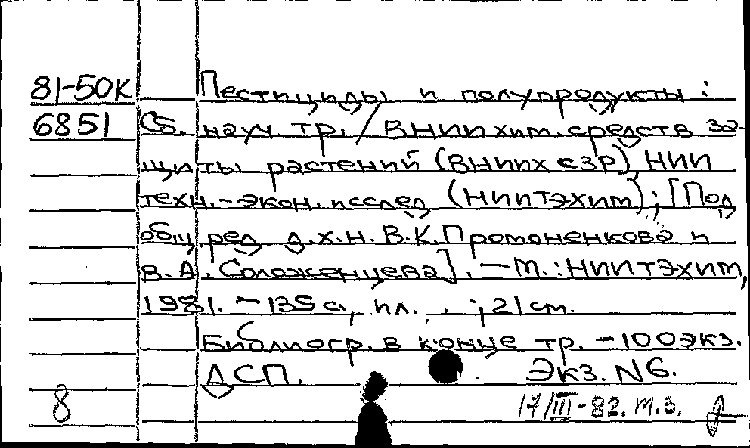 81-50К Пестициды и полупродукты:
6851 Сб. науч. тр. / ВНИИ хим. средств за-
щиты растений (ВНИИХСЗР), НИИ
техн.-экон. исслед. (НИИТЭХИМ); [Под
общ. ред. д.х.н. В.К. Промоненкова и
В.А. Соложенцева]. – М.: НИИТЭХИМ,
1981. – 139 с., ил. ; 21 см.
Библиогр. в конце тр. – 100 экз.
ДСП. Экз. N6.
8 17/III-82. м.з.